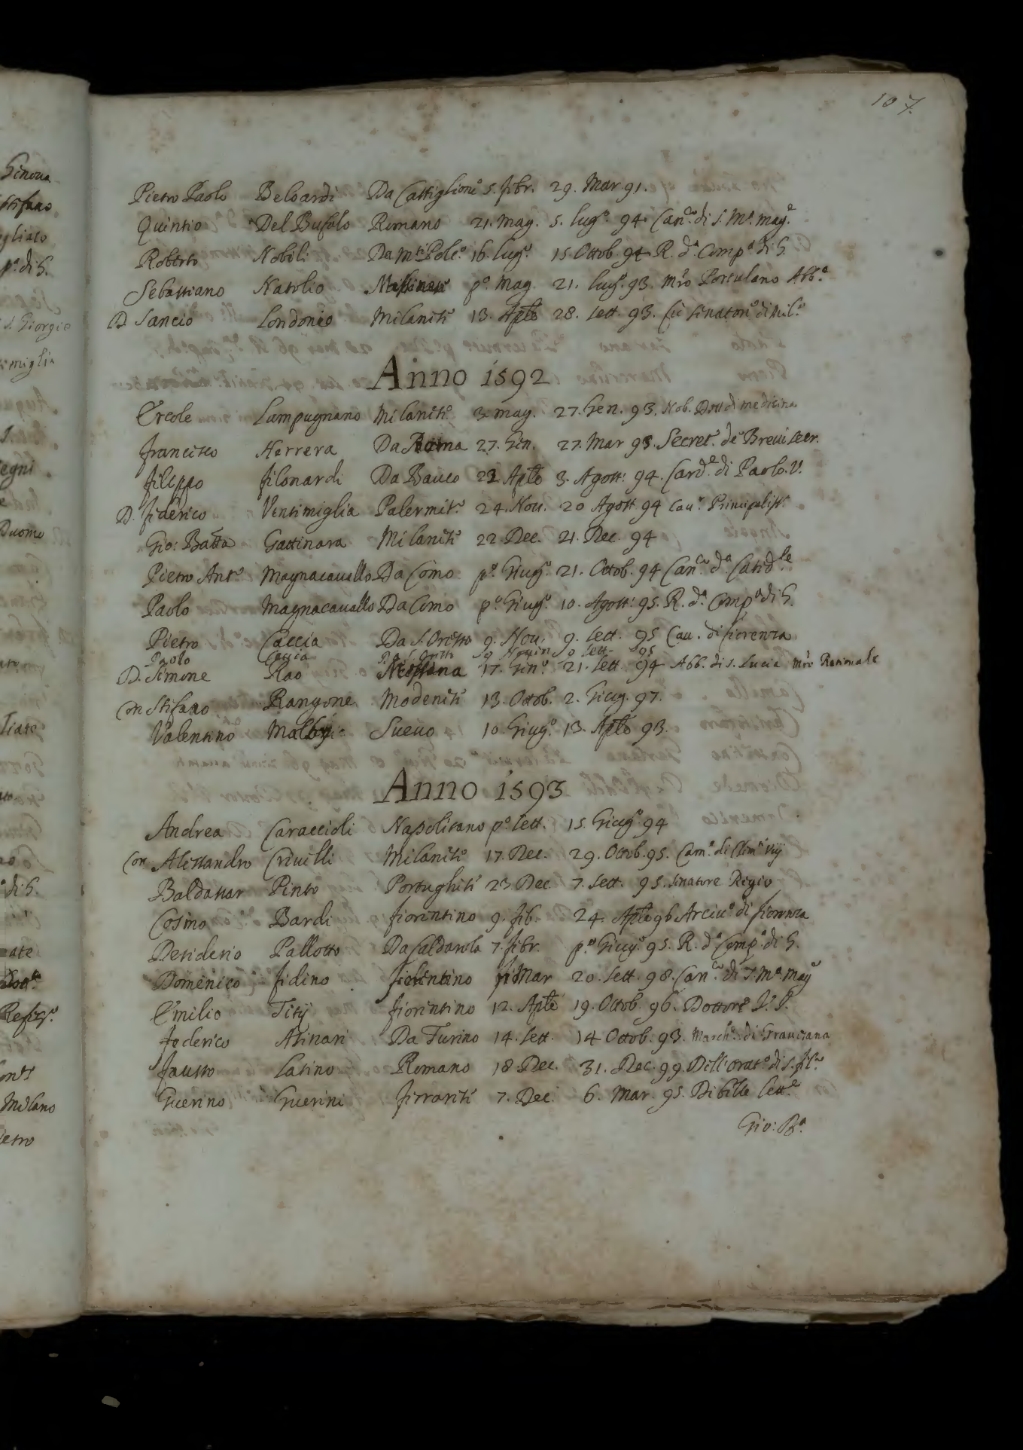 107.
Pietro Paolo Beloardi Da Castiglione 5. febr. 29. Mar 91.
Quintio Del Bufolo Romano 21. Mag. 5. lugo. 94 Cano. di S. Ma. mage.
Roberto Nobili Da Mte. Polco. 16. lugo. 15. Ottob 94 R. da Compa. di G.
Sebastiano Natolio po. Mag. 21. lugo. 93. mro Portulano
D. Sancio Londonio Milanese 13. Aple 28. Sett. 93.
Anno 1592
Ercole Lampugnano Milanese 3. mag. 27. Gen. 93. Nob. medicina
Francesco Herrera Da 27. Gen. 27. Mar 93. Secret. de Brevi
Filippo Filonardi Da Bauco 22 Aple 3. Agost. 94. Carde. di Paolo V.
D. Federico Ventimiglia Palermit. 24. Nov. 20 Agost 94 Cau.
Gio: Batta Gattinara Milanese 22. Dec. 21. Dec. 94
Pietro Anto. Magnacavallo Da Como po. Giugo. 21. Ottob. 94 Cano. da Catedle.
Paolo Magnacavallo Da Como po. Giugo. 10. Agost. 95. R. da. Compa. di G.
Pietro Caccia Da S. 9. Nov. 9. Sett. 95 Cau. di fiorenza
Paolo Caccia 9 Sett. 95
D. Simone Rao 17. Gino. 21. Sett 94 Abb. di S. Lucia mro Rationale
Con Stefano Rangone Modenese 13. Ottob. 2. Giug. 97.
Valentino Suevo 10 Giugo. 13. Aple 93.
Anno 1593
Andrea Caraccioli Napolitano po. Sett. 15. Giugo. 94
Con Alessandro Crivelli Milanese 17. Dec. 29. Ottob. 95. Camo. di
Baldassar Pinto Portughese 23. Dec. 7. Sett. 95. Senatore Regio
Cosimo Bardi fiorentino 9. feb. 24. Aple 96 Arcivo. di fiorenza
Desiderio Pallotto Da Caldarola 7. febr. po. Giugo. 95. R. da. Compa. di G.
Domenico Fedino fiorentino Mar 20. Sett. 98. Cano. di S. Ma. mage.
Emilio Titij fiorentino 12. Aple 19. Ottob. 96. Dottore
Federico Asinari Da Turino 14. Sett 14 Ottob. 93. Marche. di
Fausto Latino Romano 18. Dec. 31. Dec. 99. Dell'Orato. di S. Flo.
Guerino Guerini Ferrarese 7. Dec. 6. Mar. 95.
Gio: Ba.